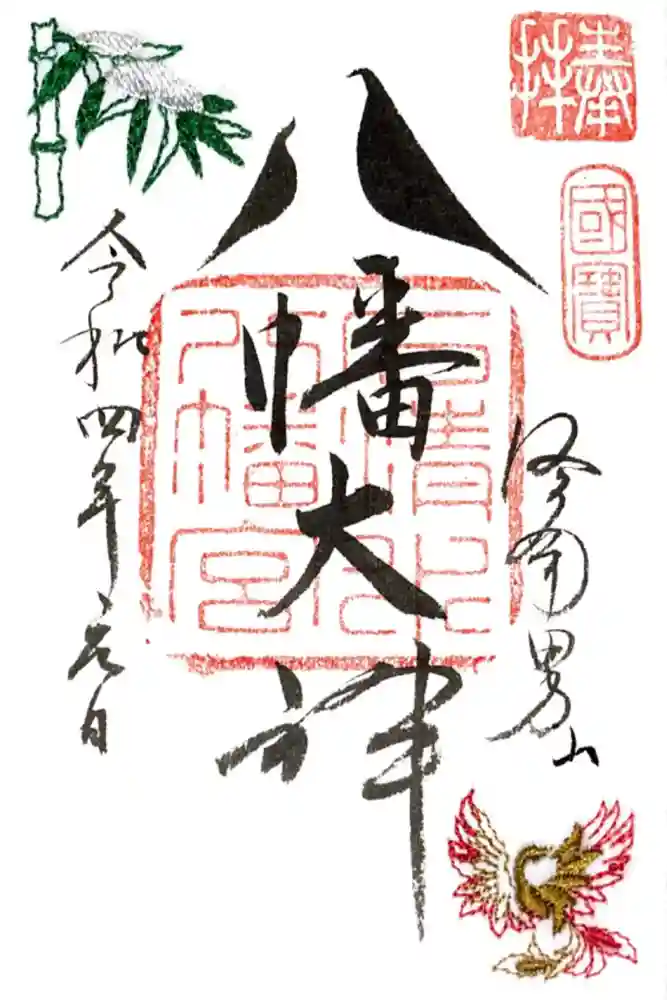 奉拝
國寶
洛南男山
八幡大神
石清水
八幡宮
令和四年元日